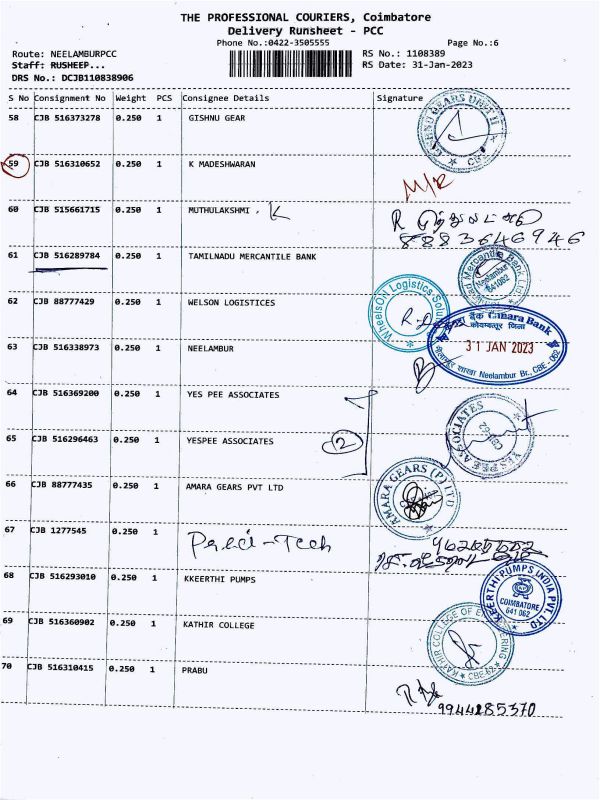 THE PROFESSIONAL COURIERS, Coimbatore
Delivery Runsheet - PCC
Phone No.:0422-3505555 Page No.:6
Route: NEELAMBURPCC RS No.: 1108389
Staff: RUSHEEP... RS Date: 31-Jan-2023
DRS No.: DCJB110838906
S No Consignment No Weight PCS Consignee Details Signature
58 CJB 516373278 0.250 1 GISHNU GEAR
GEARS UNIT II
59 CJB 516310652 0.250 1 K MADESHWARAN
M/R
60 CJB 515661715 0.250 1 MUTHULAKSHMI . K
R
8883646946
61 CJB 516289784 0.250 1 TAMILNADU MERCANTILE BANK
Mercantile Bank
Neelambur
641062
62 CJB 88777429 0.250 1 WELSON LOGISTICES
WheelsON Logistics
केनरा बैंक Canara Bank
कोयम्बत्तूर जिला
31 JAN 2023
Neelambur Br., CBE - 062
63 CJB 516338973 0.250 1 NEELAMBUR
64 CJB 516369200 0.250 1 YES PEE ASSOCIATES
65 CJB 516296463 0.250 1 YESPEE ASSOCIATES 2
YES PEE ASSOCIATES
66 CJB 88777435 0.250 1 AMARA GEARS PVT LTD
AMARA GEARS (P) LTD
67 CJB 1277545 0.250 1 Preci-Tech
68 CJB 516293010 0.250 1 KKEERTHI PUMPS
KEERTHI PUMPS INDIA PVT. LTD
COIMBATORE
641 062
69 CJB 516360902 0.250 1 KATHIR COLLEGE
KATHIR COLLEGE OF ENGINEERING
CBE-62
70 CJB 516310415 0.250 1 PRABU
9944285370